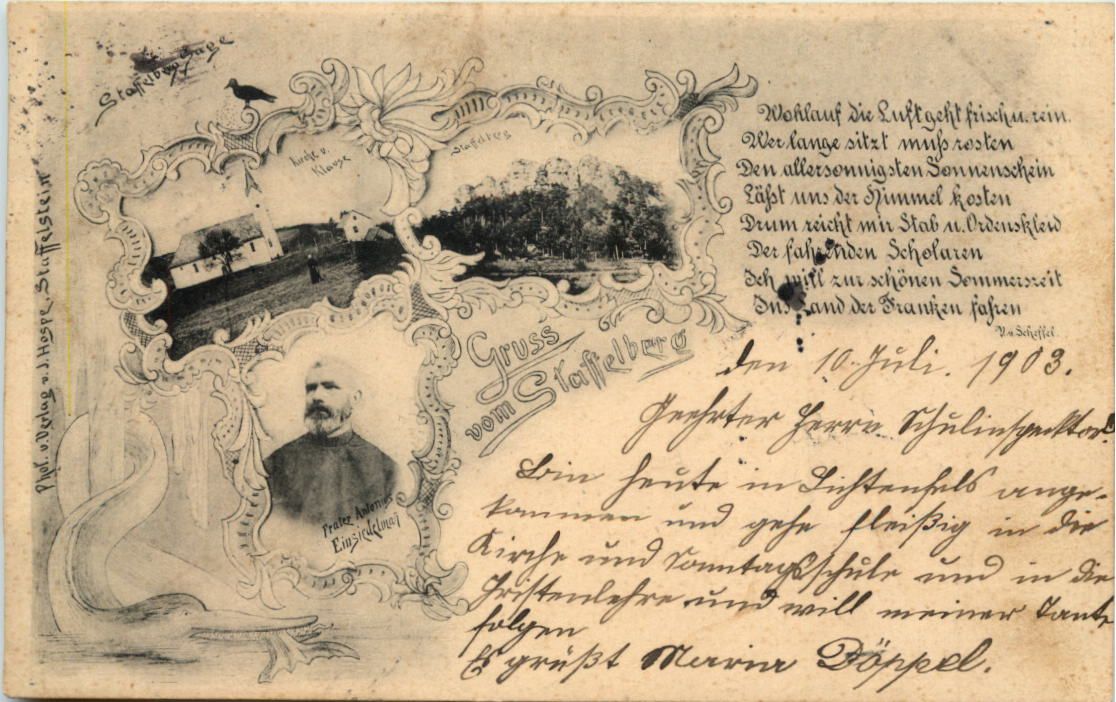 Staffelberg Sage
Kirche u.
Klause
Staffelberg
Phot. u. Verlag v. J. Hospe, Staffelstein
Frater Antonius
Einsiedelman
Gruss
vom Staffelberg
Wohlauf die Luft geht frisch u. rein.
Wer lange sitzt muß rosten
Den allersonnigsten Sonnenschein
Läßt uns der Himmel kosten
Drum reicht mir Stab u. Ordenskleid
Der fahrenden Scholaren
Ich will zur schönen Sommerszeit
Ins Land der Franken fahren
V. v. Scheffel.
den 10. Juli. 1903.
Geehrter Herrn Schulinspecktor.
Bin heute in Lichtenfels ange-
kommen und gehe fleißig in die
Kirche und Sonntagsschule und in die
Cristenlehre und will meiner Tante
folgen
Es grüßt Maria Döppel.